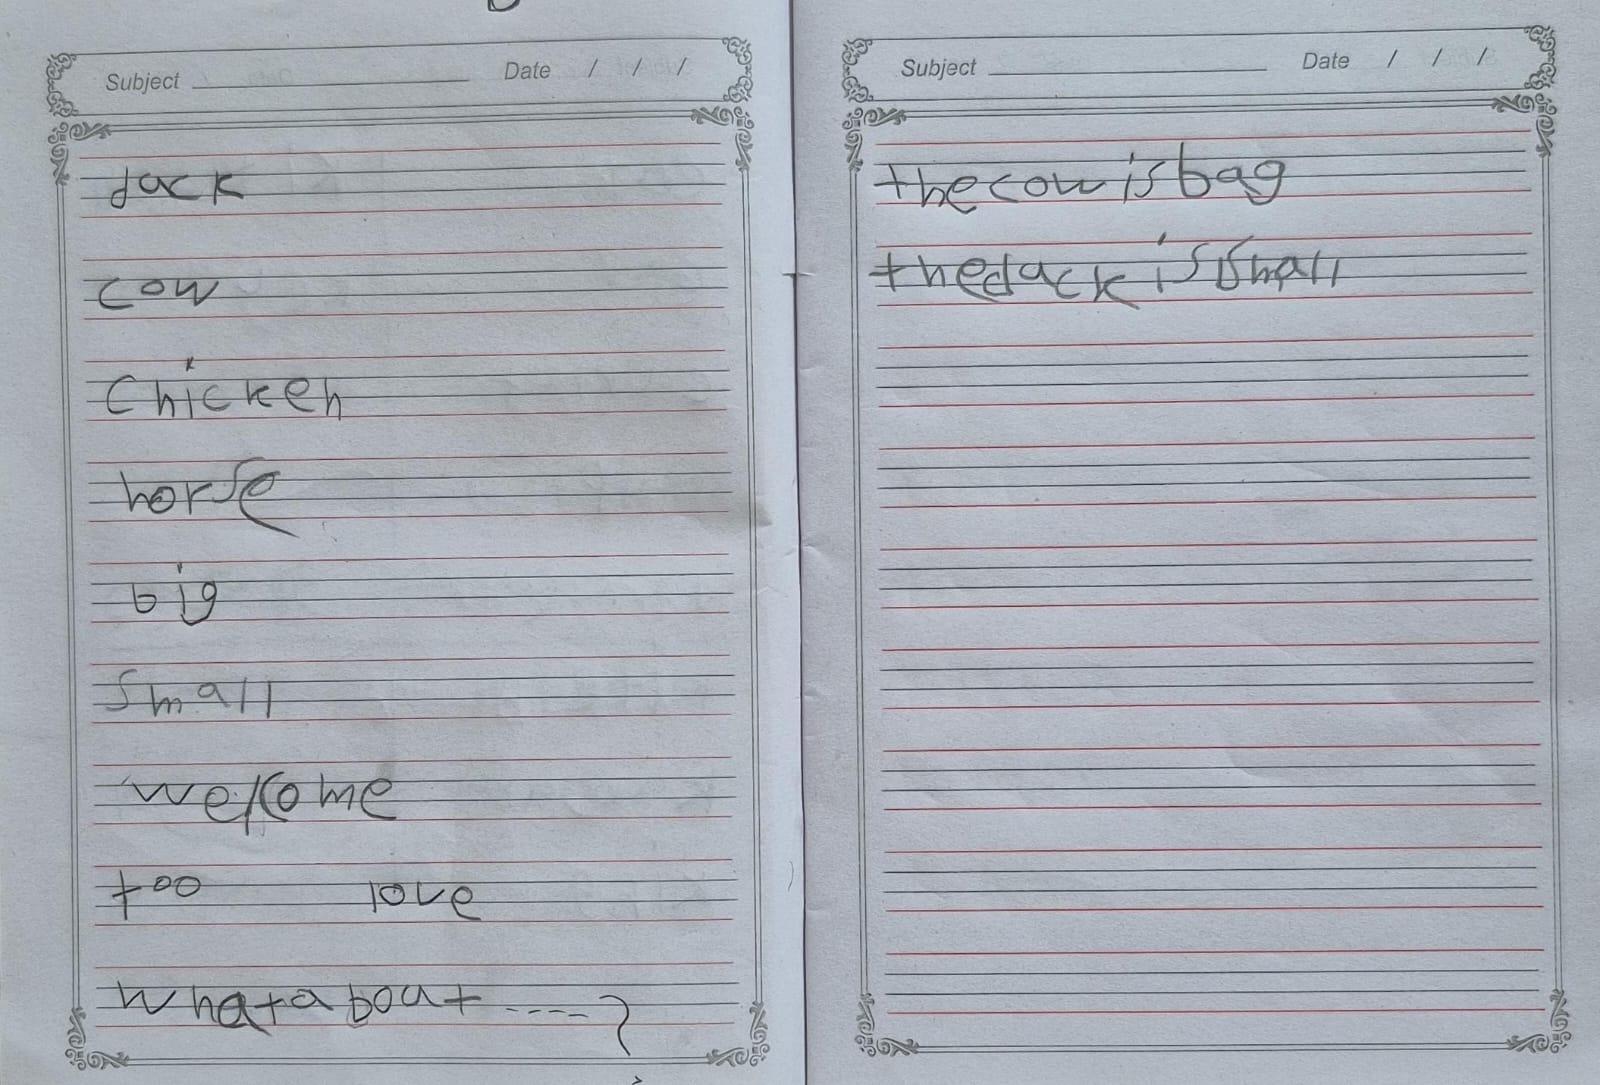 Subject Date / / /
dack
cow
Chicken
horse
big
small
welcome
too love
whatabout ----?
Subject Date / / /
thecowisbag
thedackissmall